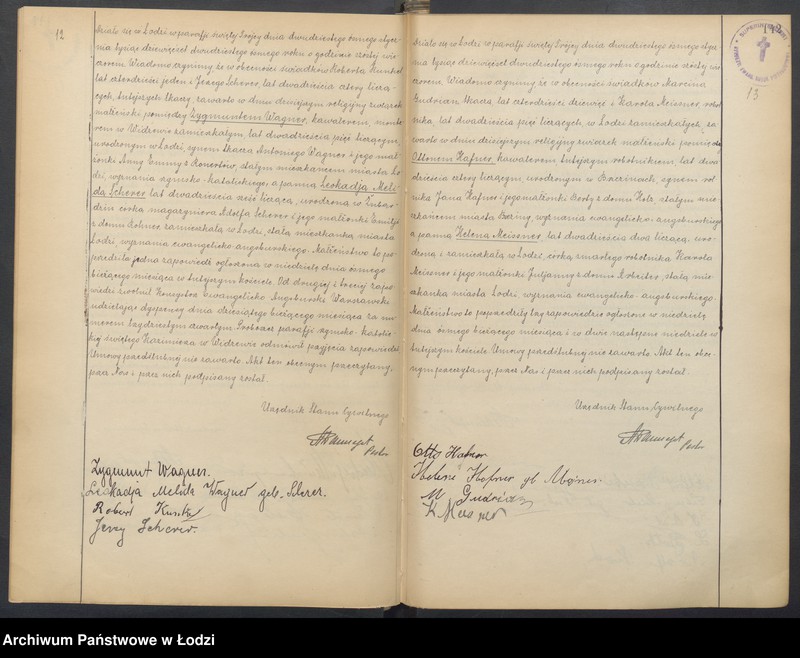 12
Działo się w Łodzi w parafji świętej Trójcy dnia dwudziestego ósmego stycz-
nia tysiąc dziewięćset dwudziestego ósmego roku o godzinie szóstej wie-
czorem. Wiadomo czynimy, że w obecności świadków Roberta Kunkel
lat czterdzieści jeden i Jerzego Scherer, lat dwadzieścia cztery liczą-
cych, tutejszych tkaczy, zawarto w dniu dzisiejszym religijny związek
małżeński pomiędzy Zygmuntem Wagner, kawalerem, monte-
rem w Widzewie zamieszkałym, lat dwadzieścia pięć liczącym,
urodzonym w Łodzi, synem tkacza Antoniego Wagner i jego mał-
żonki Anny Emmy z stałym mieszkańcem miasta Ło-
dzi, wyznania rzymsko-katolickiego, a panną Leokadją Meli-
dą Scherer, lat dwadzieścia sześć liczącą, urodzoną w
córką magazyniera Adolfa Scherer i jego małżonki Emilji
z domu zamieszkałą w Łodzi, stałą mieszkanką miasta
Łodzi, wyznania ewangelicko-augsburskiego. Małżeństwo to po-
przedziła jedna zapowiedź ogłoszona w niedzielę dnia ósmego
bieżącego miesiąca w tutejszym kościele. Od drugiej i trzeciej zapo-
wiedzi zwolnił Konsystorz Ewangelicko Augsburski Warszawski
udzielając dyspensy dnia dziesiątego bieżącego miesiąca za nu-
merem trzydziestym czwartym. Proboszcz parafji rzymsko-katolic-
kiej świętego Kazimierza w Widzewie odmówił przyjęcia zapowiedzi.
Umowy przedślubnej nie zawarto. Akt ten obecnym przeczytany,
przez Nas i przez nich podpisany został.
Urzędnik Stanu Cywilnego
Pastor
Zygmunt Wagner.
Leokadja Melida Wagner geb. Scherer.
Robert Kunkel
Jerzy Scherer.
13
Działo się w Łodzi w parafji świętej Trójcy dnia dwudziestego ósmego stycz-
nia tysiąc dziewięćset dwudziestego ósmego roku o godzinie szóstej wie-
czorem. Wiadomo czynimy, że w obecności świadków Marcina
Gudrian tkacza, lat czterdzieści dziewięć i Karola Meissner, robot-
nika, lat dwadzieścia pięć liczących, w Łodzi zamieszkałych, za-
warto w dniu dzisiejszym religijny związek małżeński pomiędzy
Ottonem Hafner, kawalerem, tutejszym robotnikiem, lat dwa-
dzieścia cztery liczącym, urodzonym w synem robot-
nika Jana Hafner i jego małżonki Berty z domu Hotz, stałym mie-
szkańcem miasta wyznania ewangelicko-augsburskiego
a panną Heleną Meissner, lat dwadzieścia dwa liczącą, uro-
dzoną i zamieszkałą w Łodzi, córką zmarłego robotnika Karola
Meissner i jego małżonki Juljanny z domu stałą mie-
szkanką miasta Łodzi, wyznania ewangelicko-augsburskiego.
Małżeństwo to poprzedziły trzy zapowiedzie ogłoszone w niedzielę
dnia ósmego bieżącego miesiąca i co dwie następne niedziele w
tutejszym kościele. Umowy przedślubnej nie zawarto. Akt ten obec-
nym przeczytany, przez Nas i przez nich podpisany został.
Urzędnik Stanu Cywilnego
Pastor
Otto Hafner
Helene Hafner gb Meisner.
M. Gudrian
K. Meisner
Archiwum Państwowe w Łodzi